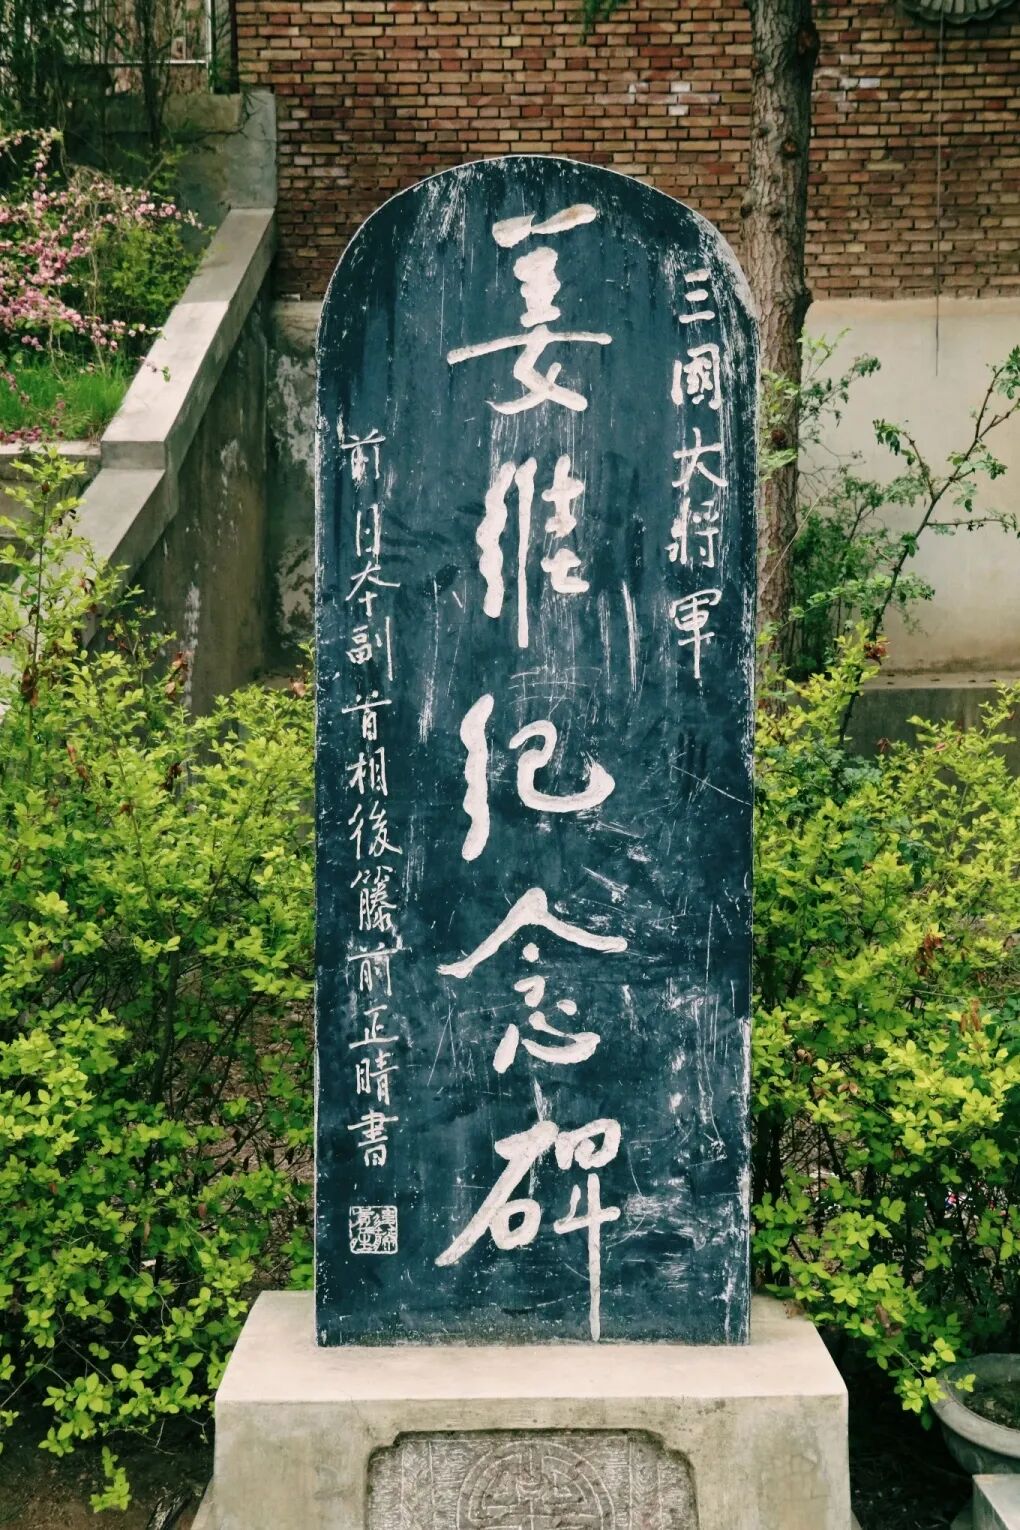 三國大將軍
姜維纪念碑
前日本副首相後籐前正晴書